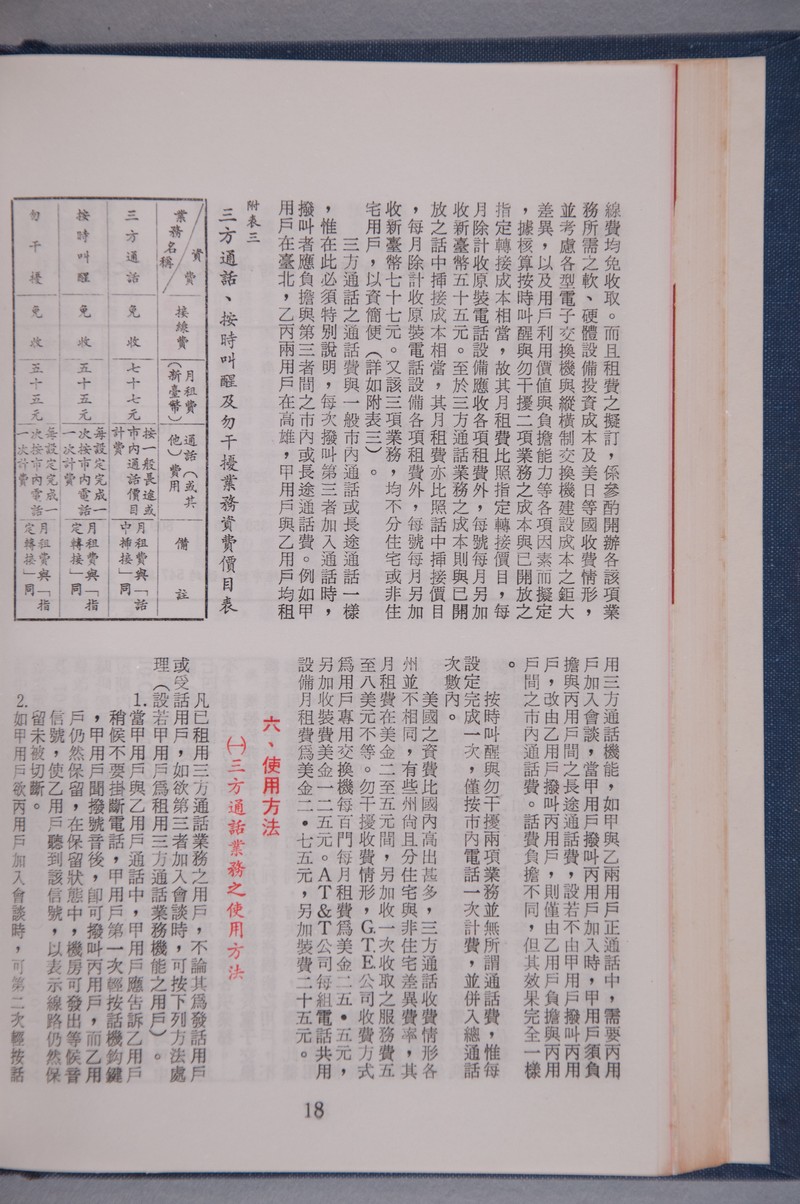 線費均免收取。而且租費之擬訂，係參酌開辦各該項業
務所需之軟、硬體設備投資成本及美日等國收費情形，
並考慮各型電子交換機與縱橫制交換機建設成本之鉅大
差異，以及用戶利用價值與負擔能力等各項因素而擬定
，據核算按時叫醒與勿干擾二項業務之成本與已開放之
指定轉接成本相當，故其月租費比照指定轉接價目，每
月除計收原裝電話設備應收各項租費外，每號每月另加
收新臺幣五十五元。至於三方通話業務之成本則與已開
放之話中插接成本相當，其月租費亦比照話中插接價目
，每月除計收原裝電話設備各項租費外，每號每月另加
收新臺幣七十七元。又該三項業務，均不分住宅或非住
宅用戶，以資簡便（詳如附表三）。
三方通話之通話費與一般市內通話或長途通話一樣
，惟在此必須特別說明，每次撥叫第三者加入通話時，
撥叫者應負擔與第三者間之市內或長途通話費。例如甲
用戶在臺北，乙丙兩用戶在高雄，甲用戶與乙用戶均租
附表三
三方通話、按時叫醒及勿干擾業務資費價目表
資費
業務名稱
接線費
月租費（新臺幣）
通話（或其他）費用
備註
三方通話
免收
七十七元
按一般長途或市內通話價目計費
月租費與「話中插接」同
按時叫醒
免收
五十五元
每設定完成一次按市內電話一次計費
月租費與「指定轉接」同
勿干擾
免收
五十五元
每設定完成一次按市內電話一次計費
月租費與「指定轉接」同
用三方通話機能，如甲與乙兩用戶正通話中，需要丙用
戶加入會談，當甲用戶撥叫丙用戶加入時，甲用戶須負
擔與丙用戶間之長途通話費，設若不由甲用戶撥叫丙用
戶，改由乙用戶撥叫丙用戶，則僅由乙用戶負擔與丙用
戶間之市內通話費。話費負擔不同，但其效果完全一樣
。
按時叫醒與勿干擾兩項業務並無所謂通話費，惟每
設定完成一次，僅按市內電話一次計費，並併入總通話
次數內。
美國之資費比國內高出甚多，三方通話收費情形各
州並不相同，有些州尙且分住宅與非住宅差異費率，其
月租費在美金二至五元間，另加收一次收取之服務費五
至八美元不等。勿干擾收費情形，G.T.E.公司收費方式
爲用戶專用交換機每百門每月租費爲美金二五•五元，
另加收裝費美金一二五元。AT&T公司每組電話共用
設備月租費爲美金二•七五元，另加裝費二十五元。
六、使用方法
㈠三方通話業務之使用方法
凡已租用三方通話業務之用戶，不論其爲發話用戶
或受話用戶，如欲第三者加入會談時，可按下列方法處
理（設若甲用戶爲租用三方通話業務機能之用戶）。
1.當甲用戶與乙用戶通話中，甲用戶應告訴乙用戶
稍候不要掛斷電話，甲用戶第一次輕按話機鉤鍵
，甲用戶聞撥號音後，卽可撥叫丙用戶，而乙用
戶仍然保留，在保留狀態中，機房可發出等候音
信號，使乙用戶聽到該信號，以表示線路仍然保
留未被切斷。
2.如甲用戶欲丙用戶加入會談時，可第二次輕按話
18